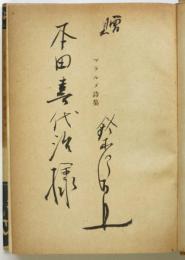 贈
マラルメ詩集
本田喜代治様
鈴木信太郎